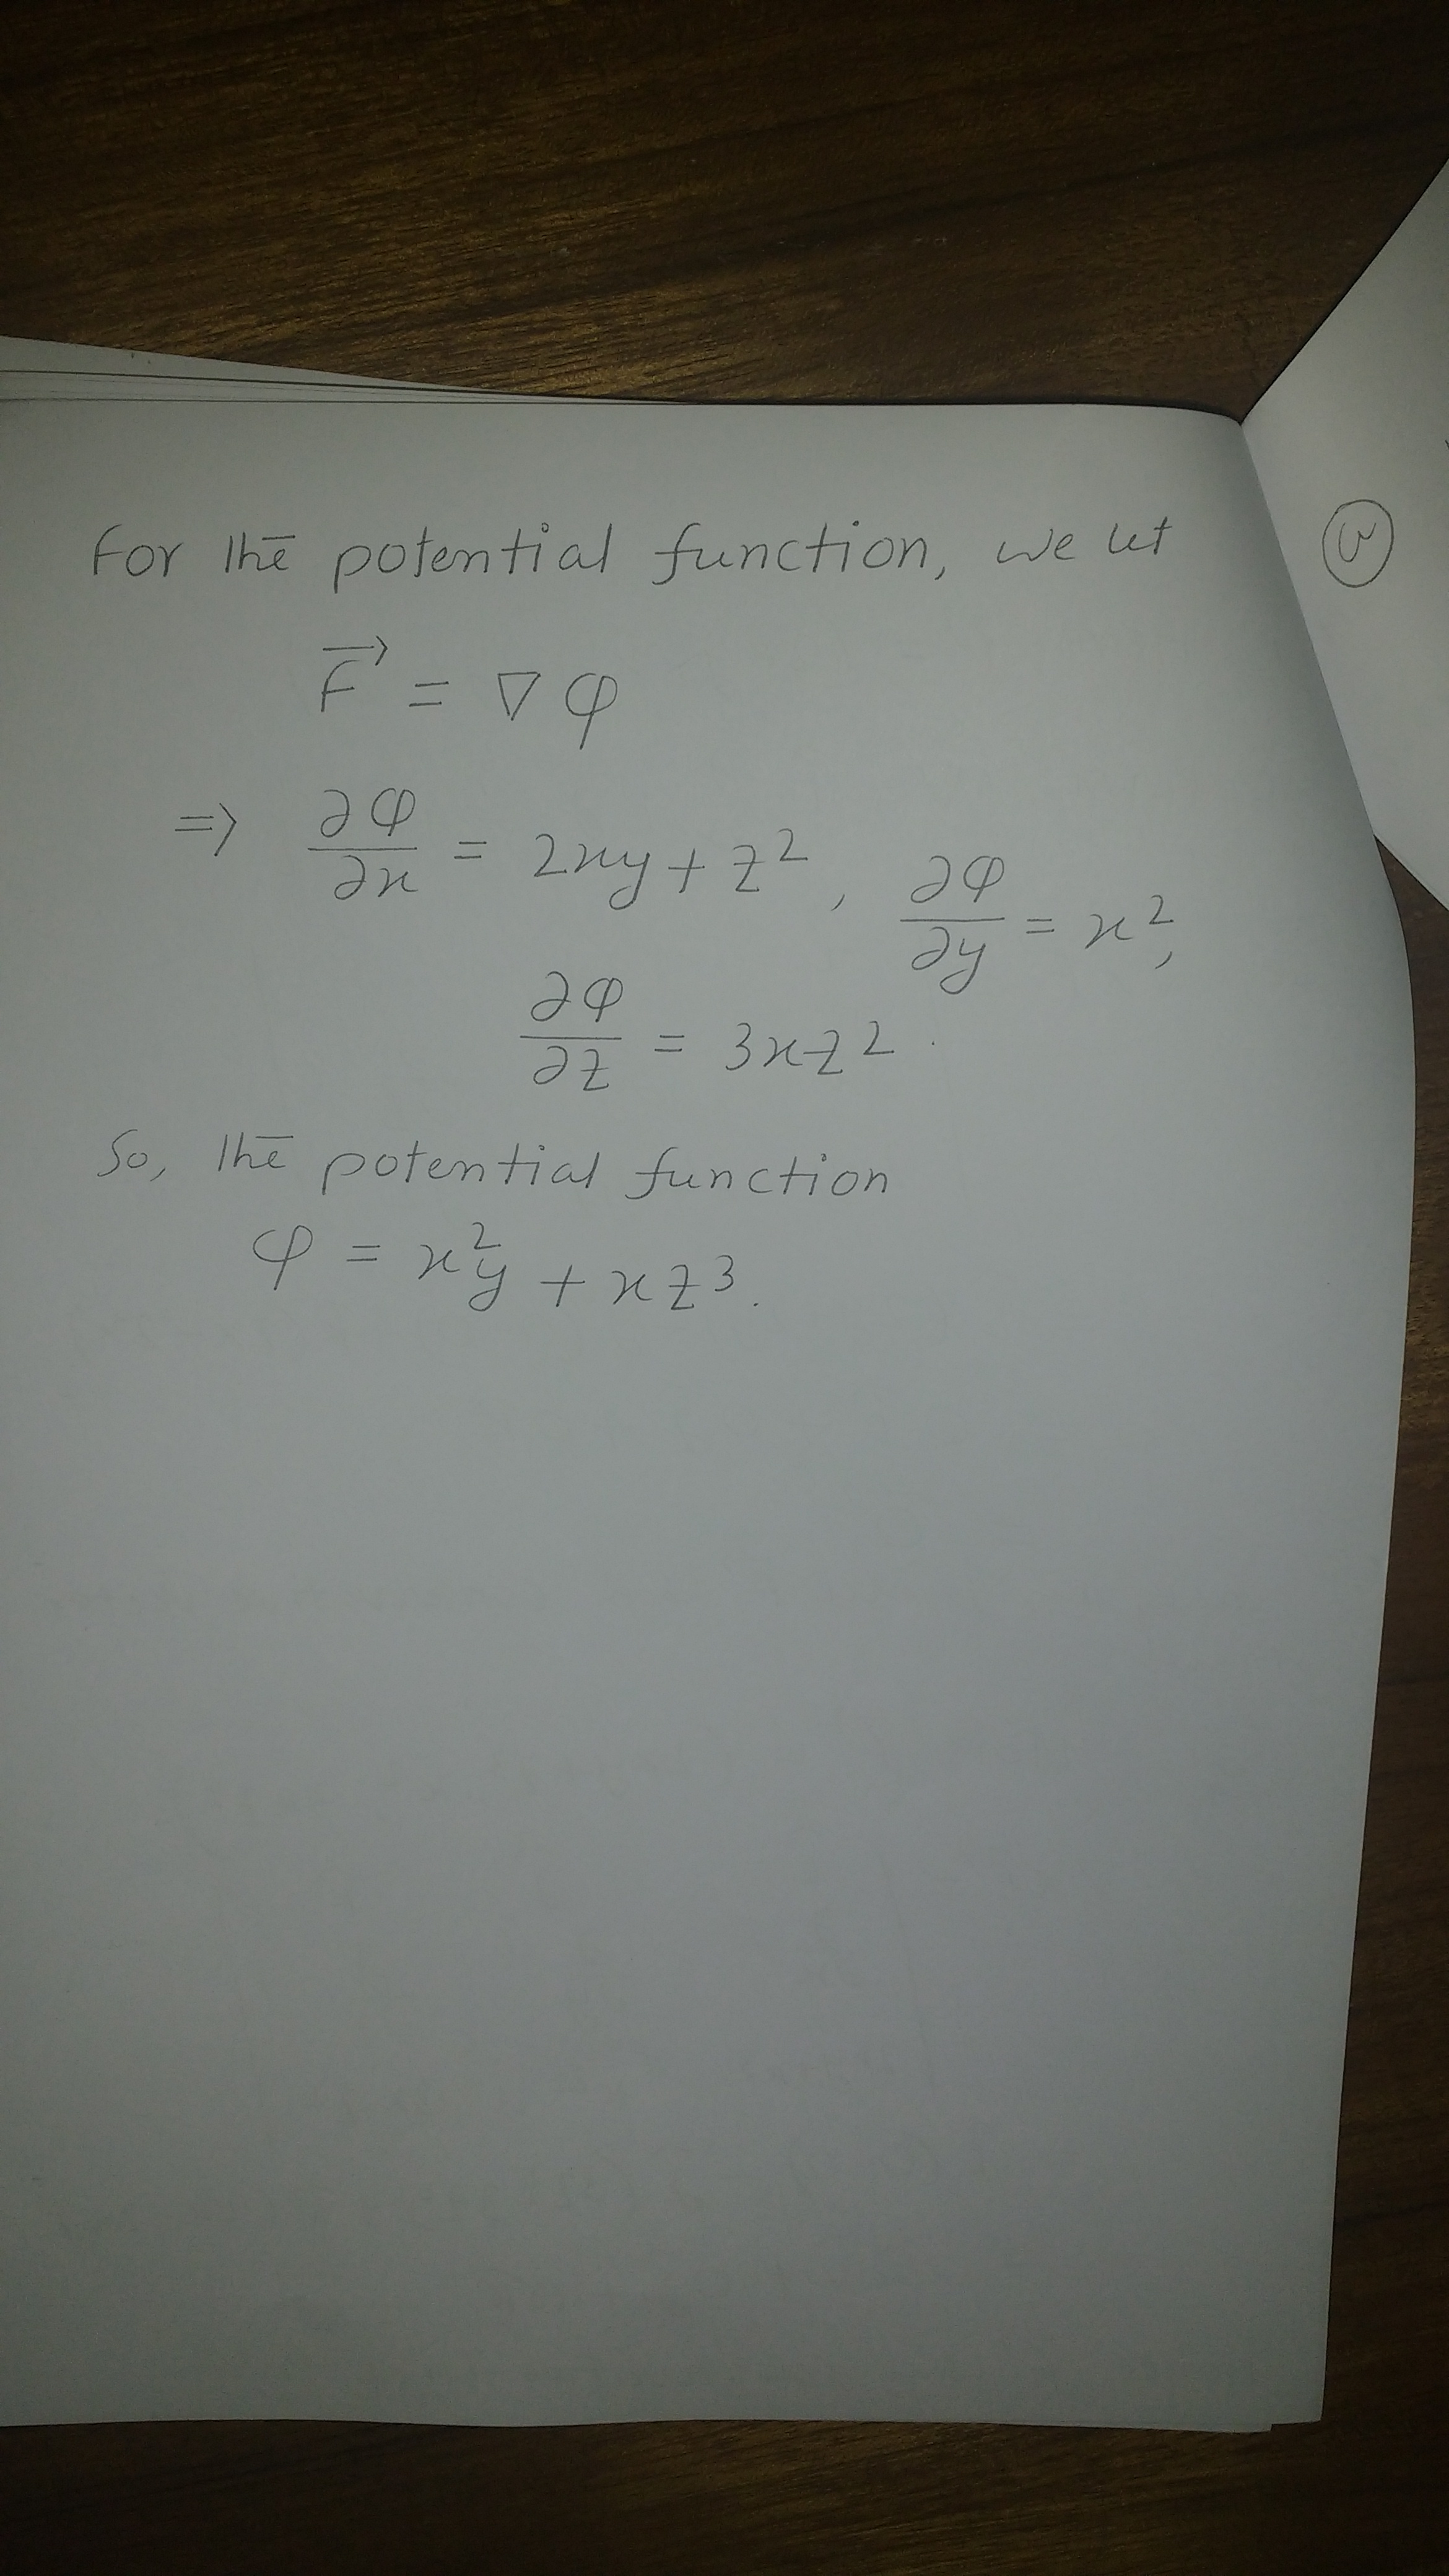 For the potential function, we let
F⃗ = ∇ φ
⇒ ∂φ/∂x = 2xy + z², ∂φ/∂y = x²,
∂φ/∂z = 3xz².
So, the potential function
φ = x²y + xz³.